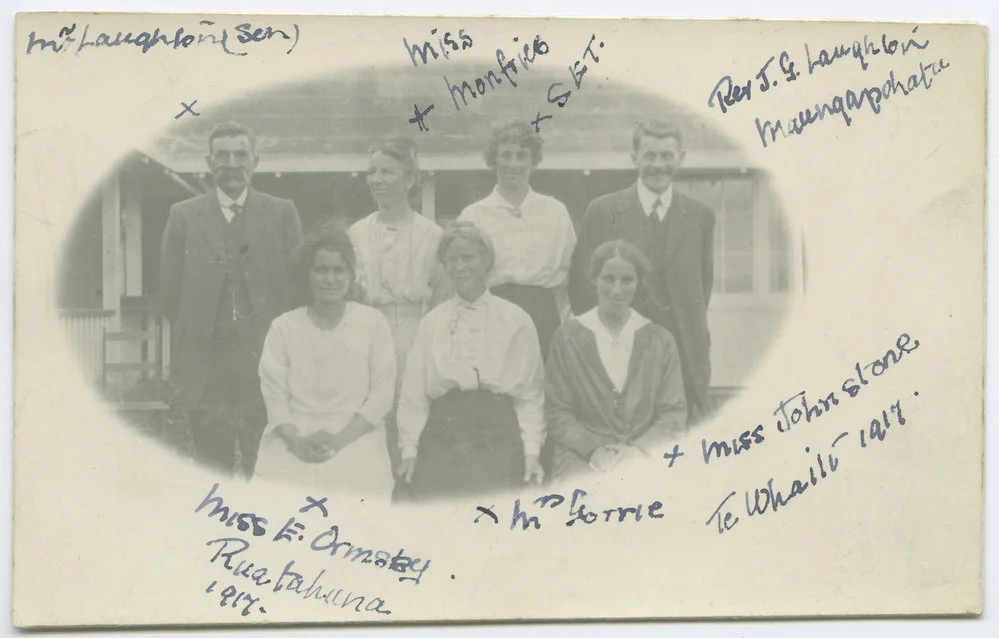 Mr Laughton (Sen)
Miss
Monfries
S.E.T.
Rev J. G. Laughton
Maungapohatu
Miss Johnstone
Te Whaiti 1917.
Mrs Gorrie
Miss E. Ormsby.
Ruatahuna
1917.